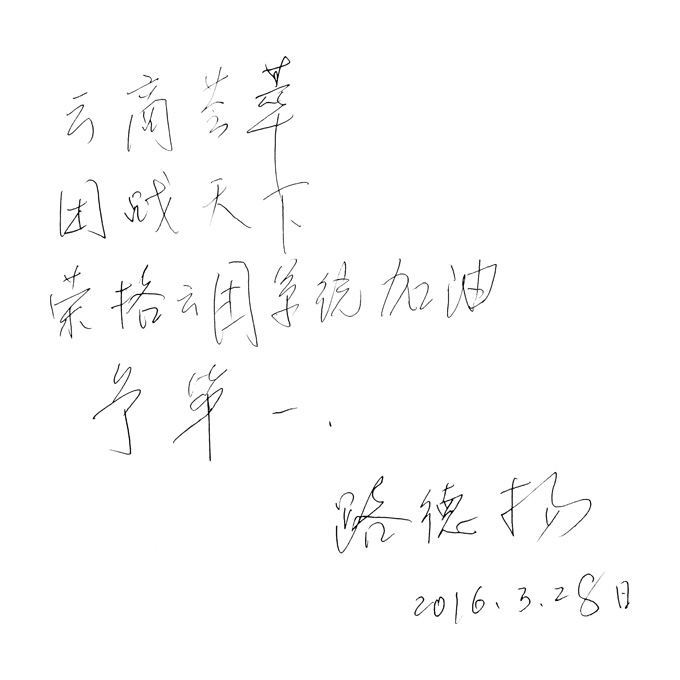 云商荟萃
团战天下
荣格云团系统加油
争第一.
路德扬
2016.3.28日